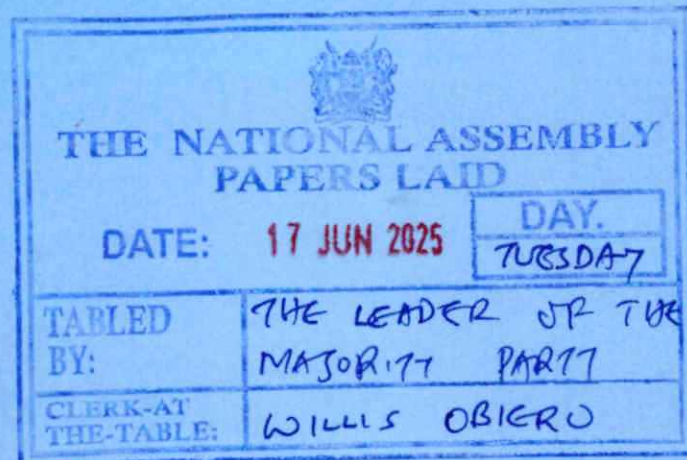 THE NATIONAL ASSEMBLY
PAPERS LAID
DATE: 17 JUN 2025
DAY.
TUESDAY
TABLED BY: THE LEADER OF THE
MAJORITY PARTY
CLERK-AT THE-TABLE: WILLIS OBIERO